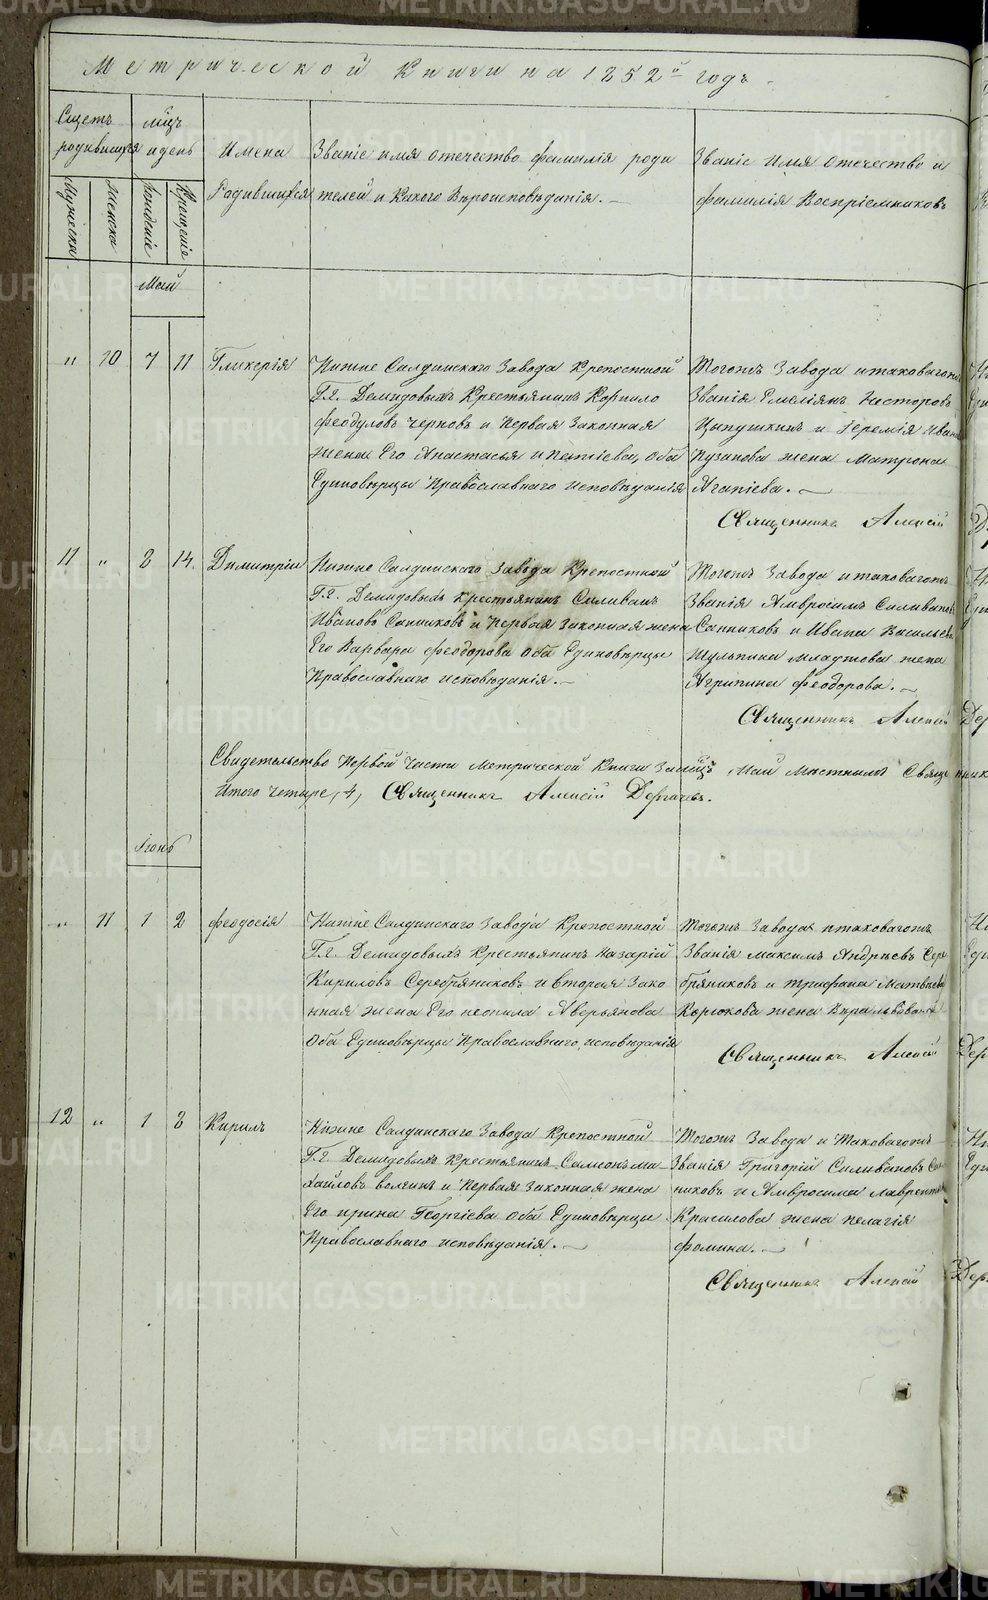 Метрической Книги на 1852й годъ
Счетъ родившихся
мцъ и день
Имена Родившихся
Званіе имя отечество фамилія роди
телей и Какого Вѣроисповѣданія.
Званіе Имя отечество и
фамилія Воспріемниковъ
Мужеска
Женска
Рожденіе
Крещеніе
Май
" 10 7 11 Гликерія
Нижне Салдинскаго Завода Крепостной
Г.г. Демидовыхъ Крестьянинъ Корнило
Феодуловъ Черновъ и Первая Законная
жена Его Анастасья Ипатіева, оба
Единовѣрцы Православнаго исповѣданія
Тогожъ Завода итаковагожъ
Званія Емеліянъ Несторовъ
Цыпушкинъ и Іеремія Ивано
Пузанова жена Матрона
Агапіева.
Священникъ Алексій
11 " 8 14. Димитрій
Нижне Салдинскаго Завода Крепостной
Г.г. Демидовыхъ Крестьянинъ Силиванъ
Ивановъ Санниковъ и Первая Законная жена
Его Варвара Феодорова оба Единовѣрцы
Православнаго исповѣданія.
Тогожъ Завода итаковагожъ
Званія Амвросимъ Силиванов
Санниковъ и Ивана Васильева
жена
Агрипина Феодорова.
Священникъ Алексій
Свидетельство Первой Части Метрической Книги За мцъ Май Местнымъ Священникъ
Итого четыре, 4, Священникъ Алексій Дергачевъ.
Іюнь
" 11 1 2 Феодосія
Нижне Салдинскаго Завода Крепостной
Г.г. Демидовыхъ Крестьянинъ Назарій
Кириловъ Серебряниковъ и вторая Зако
нная жена Его неонила Аверьянова
Оба Единовѣрцы Православнаго исповѣданія
Тогожъ Завода итаковагожъ
Званія Максимъ Андреевъ Сере
бряниковъ и трифана Матвеева
жена
Священникъ Алексій
12 " 1 8 Кирилъ
Нижне Салдинскаго Завода Крепостной
Г.г. Демидовыхъ Крестьянинъ Самсонъ ми
хайловъ волгинъ и Первая Законная жена
Его ирина Георгіева Оба Единовѣрцы
Православнаго исповѣданія.
Тогожъ Завода и Таковагожъ
Званія Григорій Силивановъ Сан
никовъ и Амвросима Лаврентье
Красилова жена пелагія
фомина.
Священникъ Алексій
METRIKI.GASO-URAL.RU